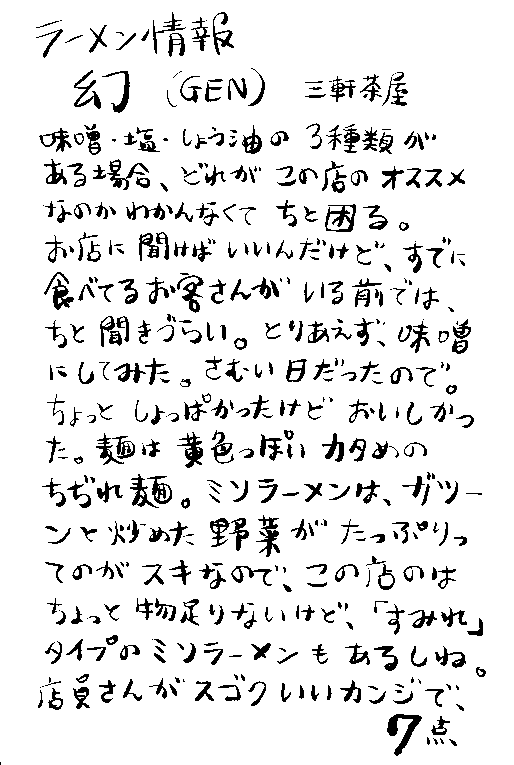 ラーメン情報
幻(GEN) 三軒茶屋
味噌・塩・しょう油の3種類が
ある場合、どれがこの店のオススメ
なのかわかんなくてちと困る。
お店に聞けばいいんだけど、すでに
食べてるお客さんがいる前では、
ちと聞きづらい。とりあえず、味噌
にしてみた。さむい日だったので。
ちょっとしょっぱかったけどおいしかっ
た。麺は黄色っぽいカタめの
ちぢれ麺。ミソラーメンは、ガツー
ンと炒めた野菜がたっぷりっ
てのがスキなので、この店のは
ちょっと物足りないけど、「すみれ」
タイプのミソラーメンもあるしね。
店員さんがスゴクいいカンジで、
7点